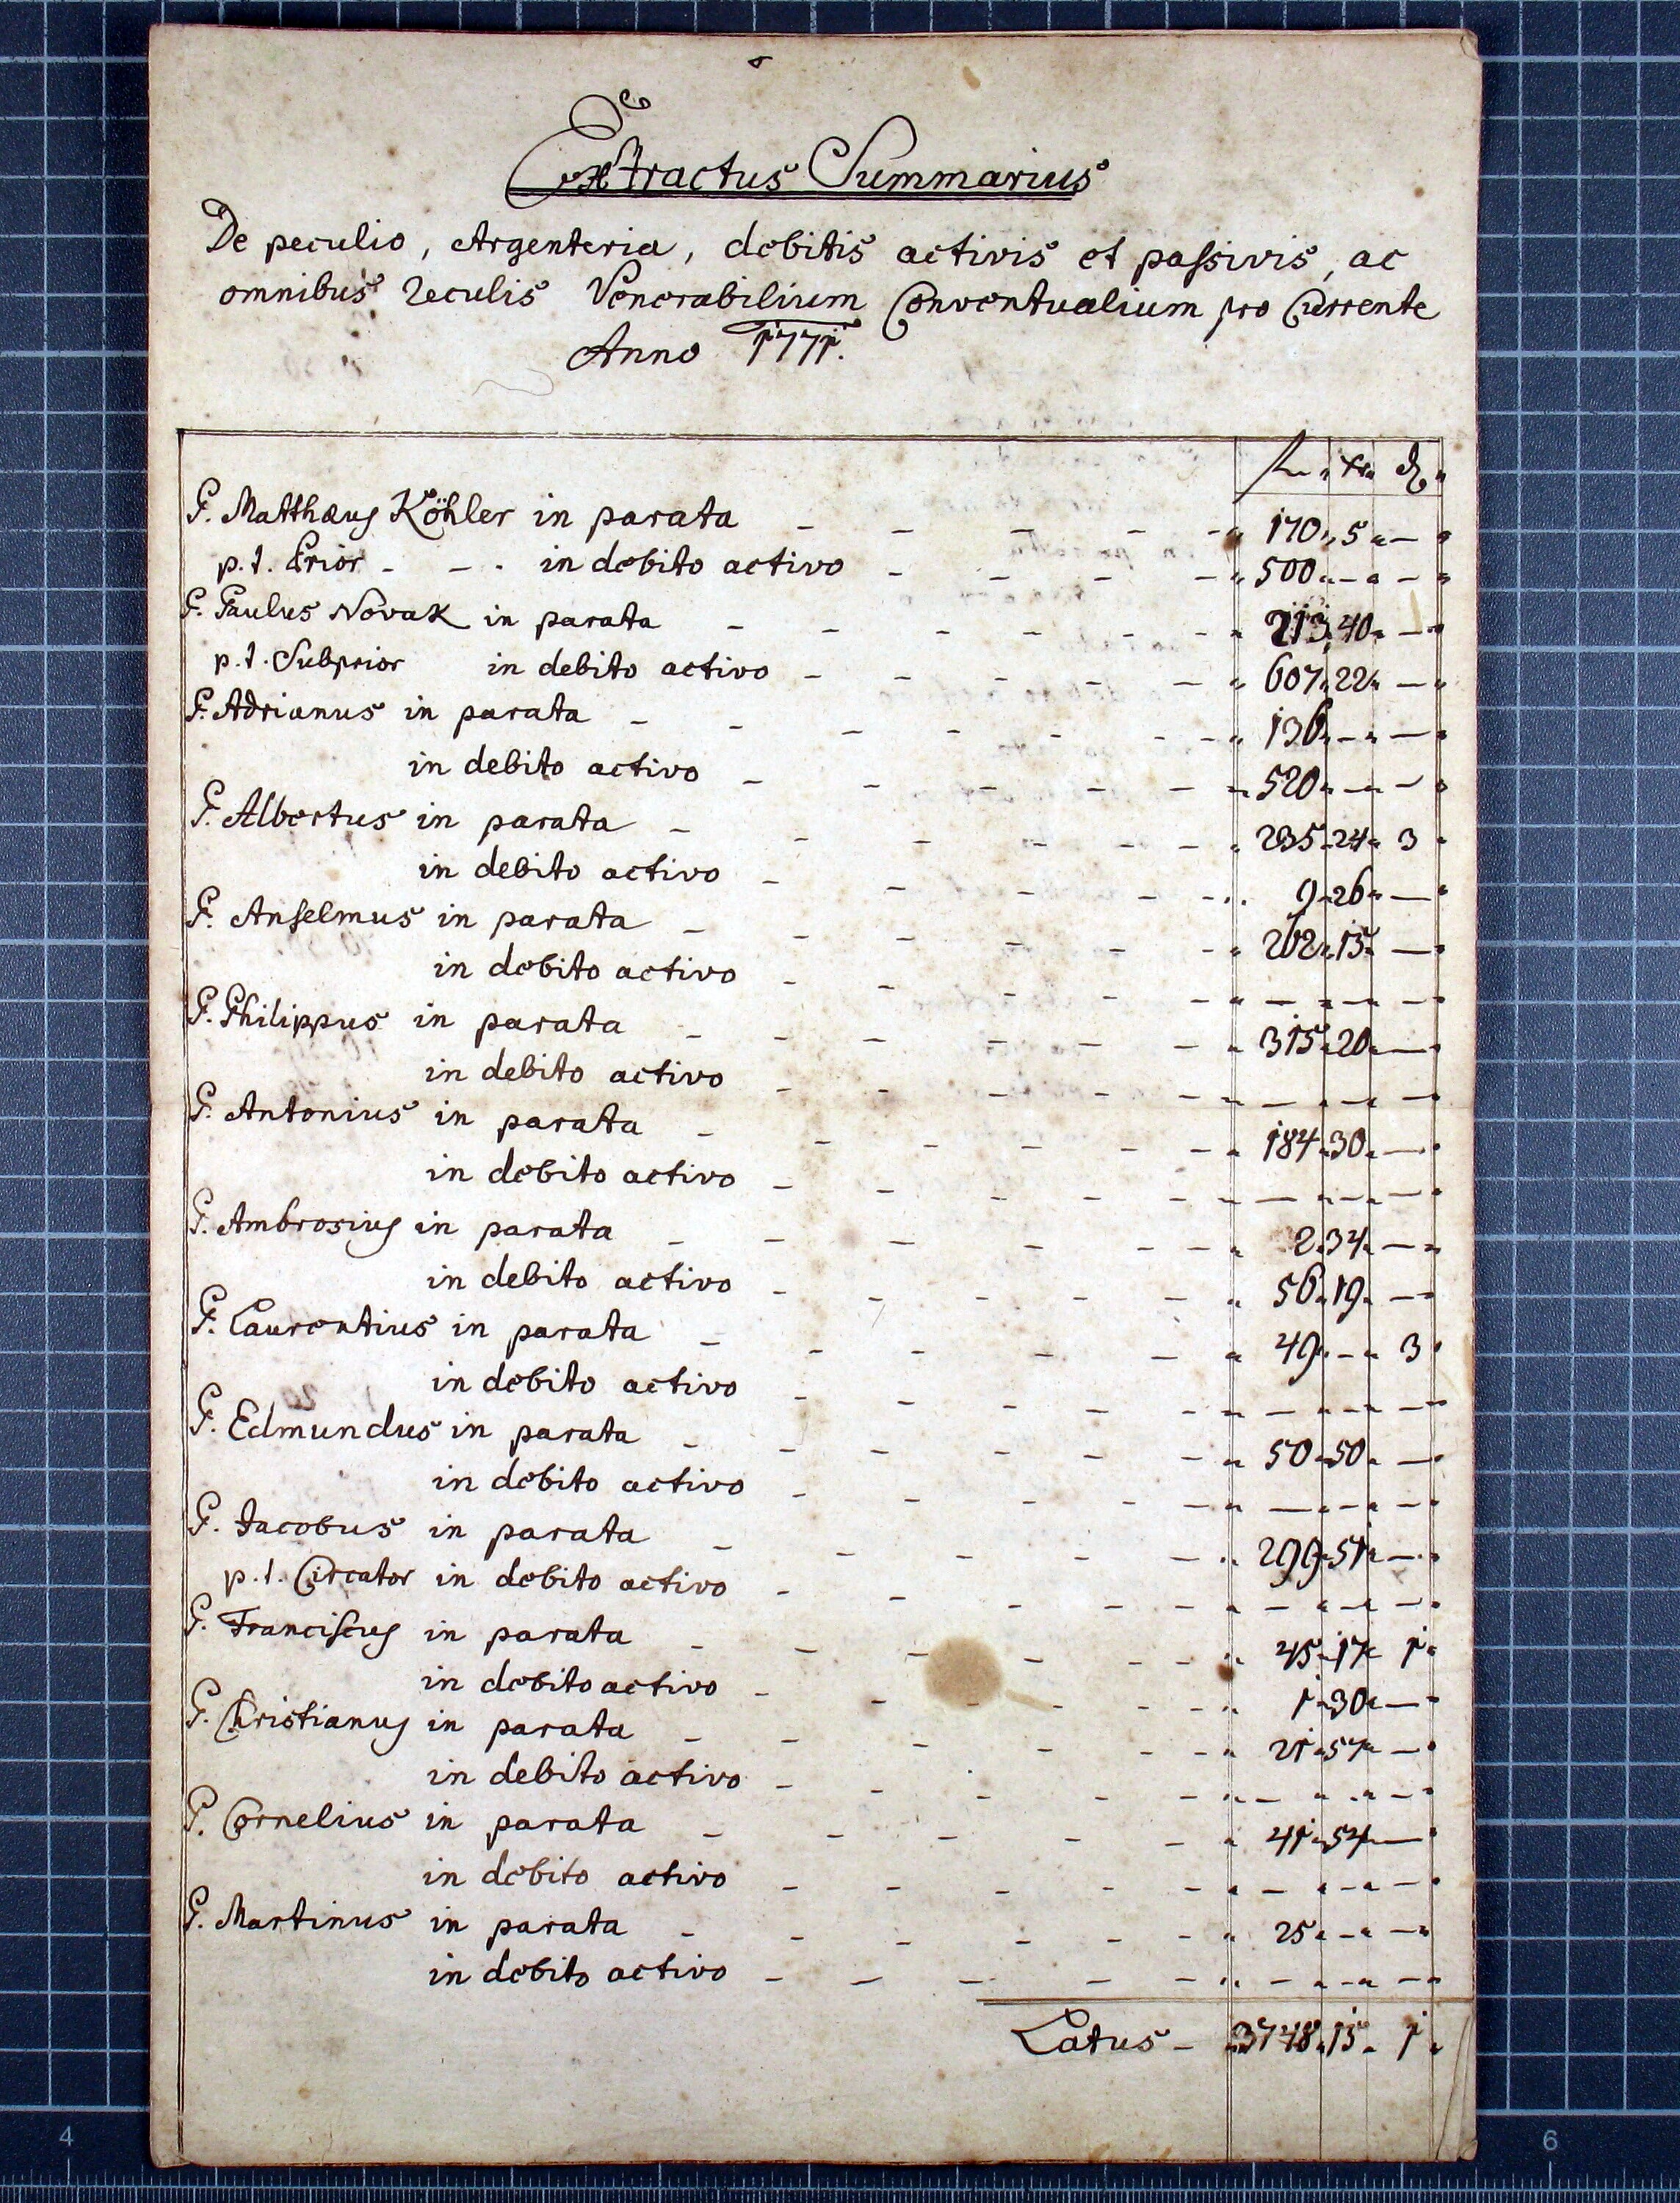 Extractus Summarius
De peculio, Argenteria, debitis activis et passivis, ac
omnibus reculis Venerabilium Conventualium pro Currente
Anno 1771.
f xr d
P. Matthæus Köhler in parata - - - - - 170 5 —
p.t. Prior - - - in debito activo - - - - 500 — —
P. Paulus Novak in parata - - - - - - 213 40 —
p.t. Subprior in debito activo - - - - - 607 22 —
P. Adrianus in parata - - - - - - - 136 — —
in debito activo - - - - - 520 — —
P. Albertus in parata - - - - - - 235 24 3
in debito activo - - - - - 9 26 —
P. Anselmus in parata - - - - - - 262 15 —
in debito activo - - - - - — — —
P. Philippus in parata - - - - - - 315 20 —
in debito activo - - - - - — — —
P. Antonius in parata - - - - - - 184 30 —
in debito activo - - - - - — — —
P. Ambrosius in parata - - - - - - 2 34 —
in debito activo - - - - - 56 19 —
P. Laurentius in parata - - - - - 49 — 3
in debito activo - - - - - — — —
P. Edmundus in parata - - - - - - 50 50 —
in debito activo - - - - - — — —
P. Jacobus in parata - - - - - 299 51 —
p.t. Circator in debito activo - - - - - — — —
P. Franciscus in parata - - - - - - 45 17 1
in debito activo - - - - - - 1 30 —
P. Christianus in parata - - - - - - 21 57 —
in debito activo - - - - - — — —
P. Cornelius in parata - - - - - 41 54 —
in debito activo - - - - - — — —
P. Martinus in parata - - - - - - 25 — —
in debito activo - - - - - — — —
Latus - 3748 15 1
4
6